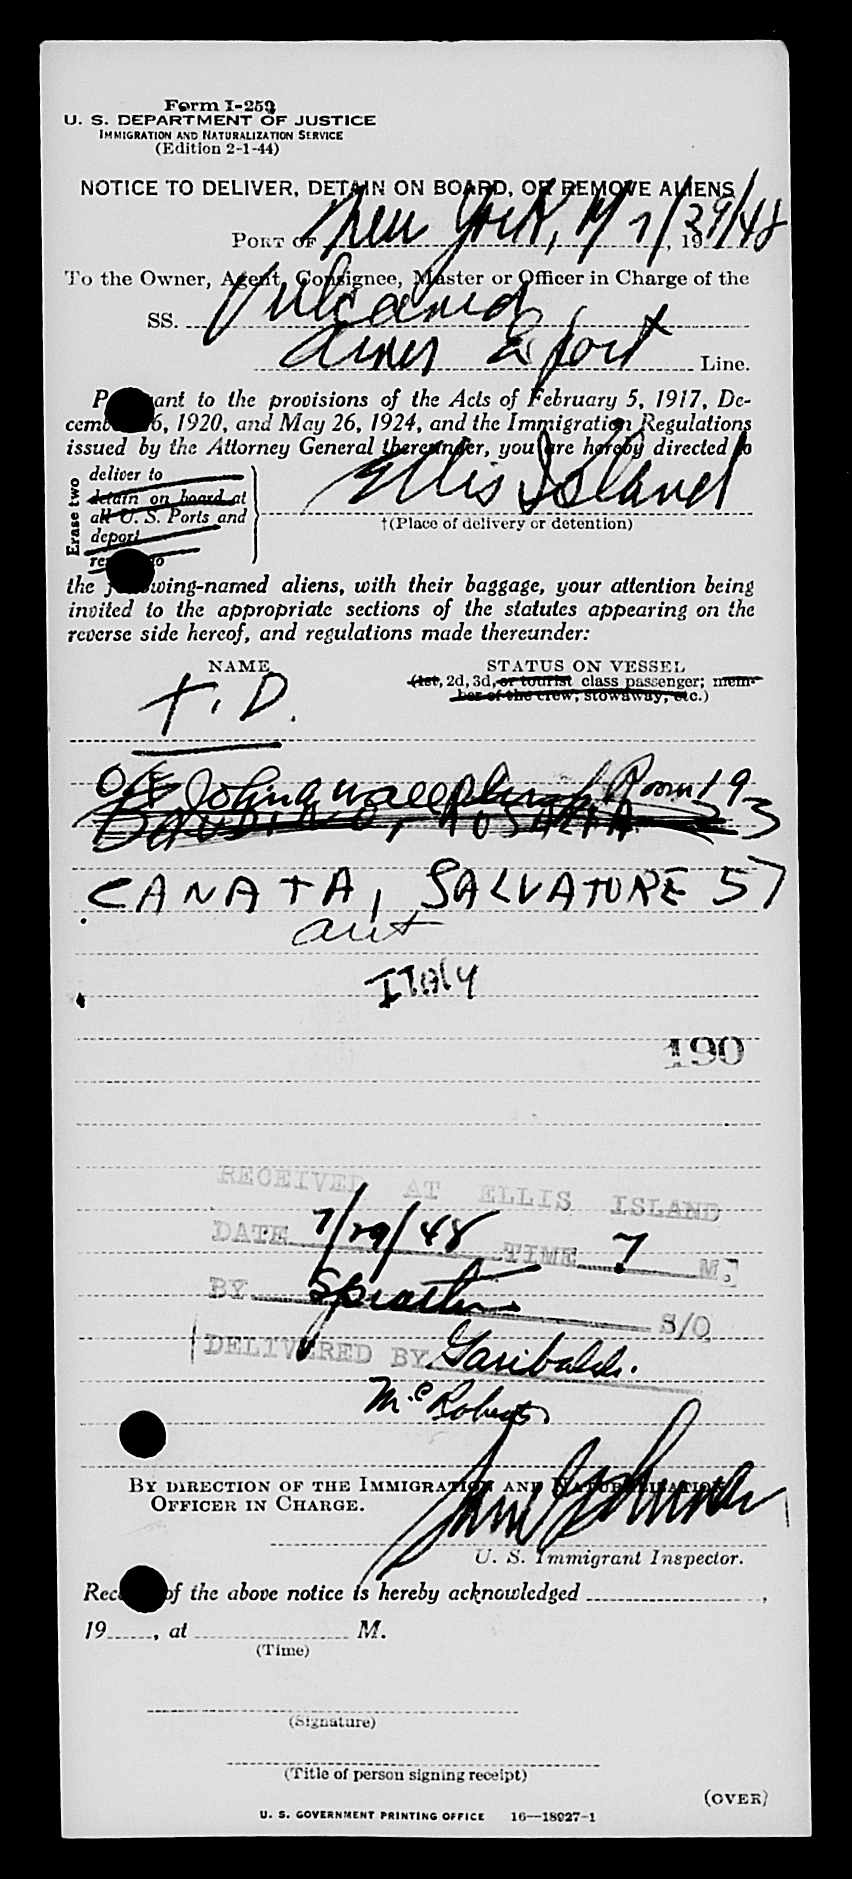 Form I-259
U. S. DEPARTMENT OF JUSTICE
IMMIGRATION AND NATURALIZATION SERVICE
(Edition 2-1-44)
NOTICE TO DELIVER, DETAIN ON BOARD, OR REMOVE ALIENS
PORT OF New York, NY 7/29/48, 19
To the Owner, Agent, Consignee, Master or Officer in Charge of the
SS. Vulcania
Amer Export Line.
Pursuant to the provisions of the Acts of February 5, 1917, De-
cember 26, 1920, and May 26, 1924, and the Immigration Regulations
issued by the Attorney General thereunder, you are hereby directed to
Erase two
deliver to
detain on board at
all U. S. Ports and
deport
remove to
Ellis Island
†(Place of delivery or detention)
the following-named aliens, with their baggage, your attention being
invited to the appropriate sections of the statutes appearing on the
reverse side hereof, and regulations made thereunder:
NAME
STATUS ON VESSEL
(1st, 2d, 3d, or tourist class passenger; mem-
ber of the crew, stowaway, etc.)
T. D.
Room 193
CANATA, SALVATORE 57
aut
Italy
190
RECEIVED AT ELLIS ISLAND
DATE 7/29/48 TIME 7 M.
BY S/O
DELIVERED BY Garibaldi.
McRoberts
BY DIRECTION OF THE IMMIGRATION AND NATURALIZATION
OFFICER IN CHARGE.
U. S. Immigrant Inspector.
Receipt of the above notice is hereby acknowledged ,
19 , at M.
(Time)
(Signature)
(Title of person signing receipt)
(OVER)
U. S. GOVERNMENT PRINTING OFFICE 16—18927-1